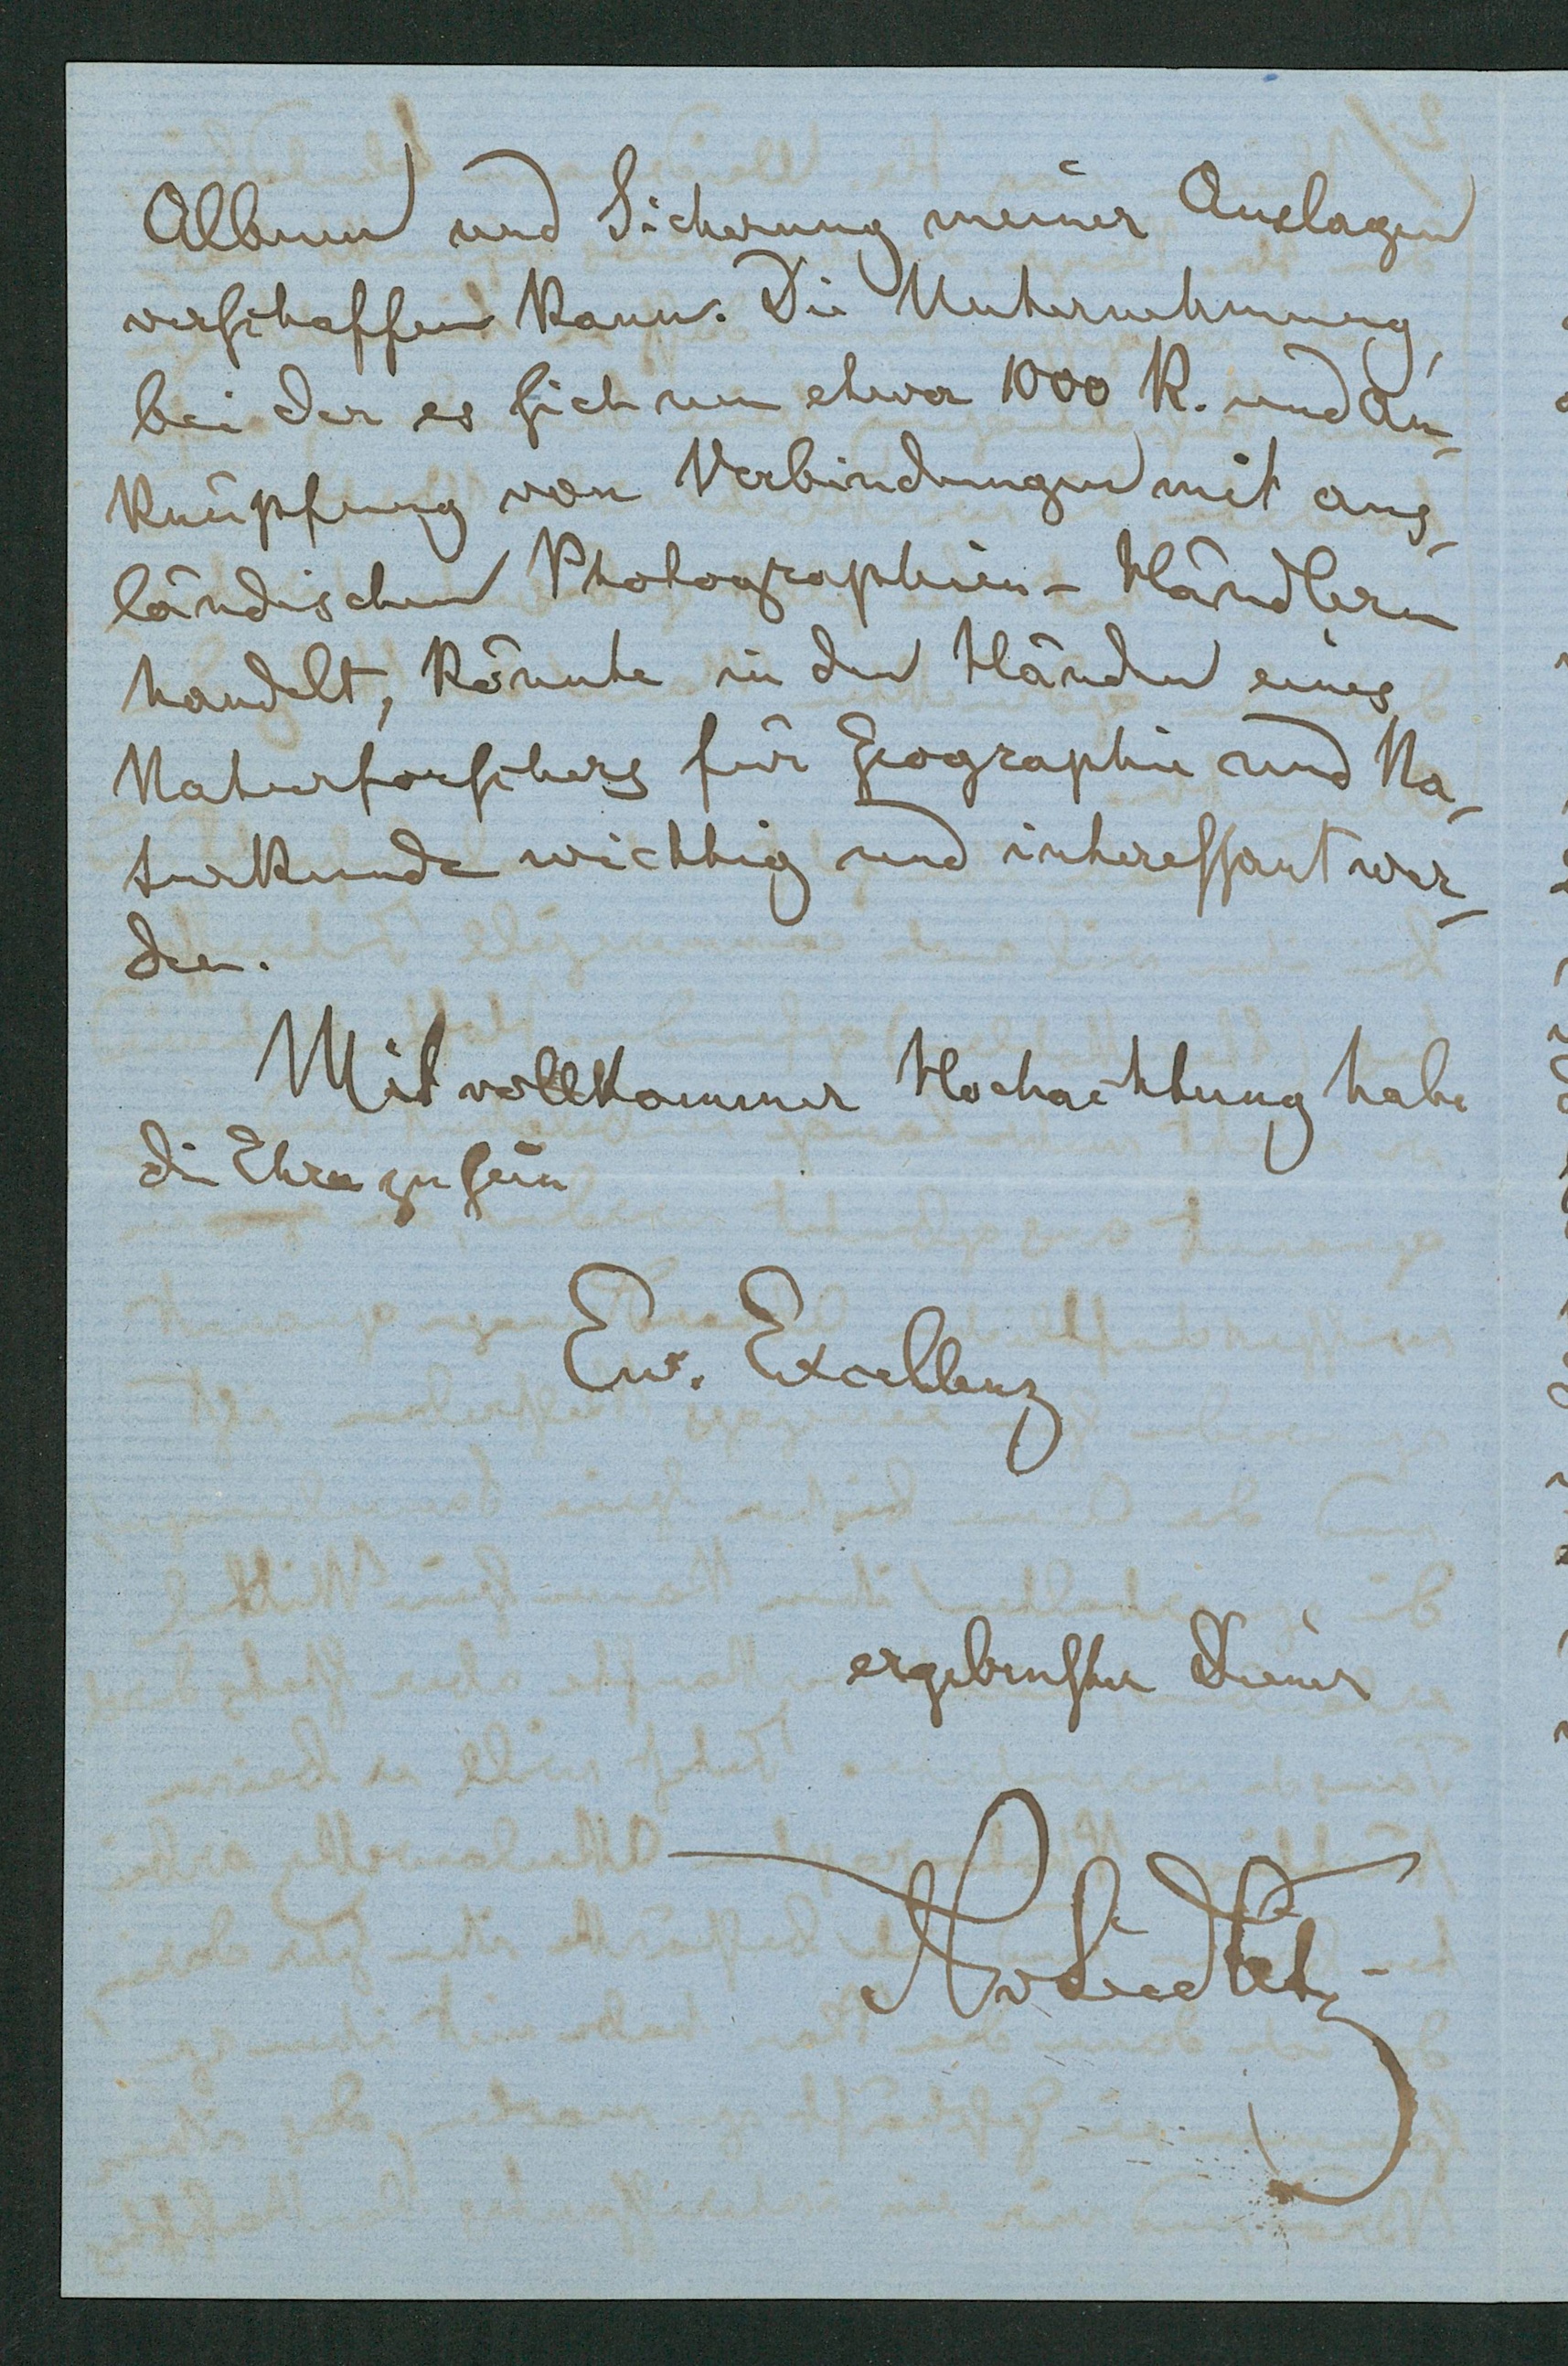 Album und Sicherung meiner Auslagen
verschaffen kann. Die Unternehmung,
bei der es sich um etwa 1000 R. und An-
knüpfung von Verbindungen mit aus-
ländischen Photographien-Händlern
handelt, könnte in den Händen eines
Naturforschers für Geographie und Na-
turkunde wichtig und interessant wer-
den.
Mit vollkommner Hochachtung habe
die Ehre zu sein
Ew. Excellenz
ergebenster Diener
N v Seidlitz